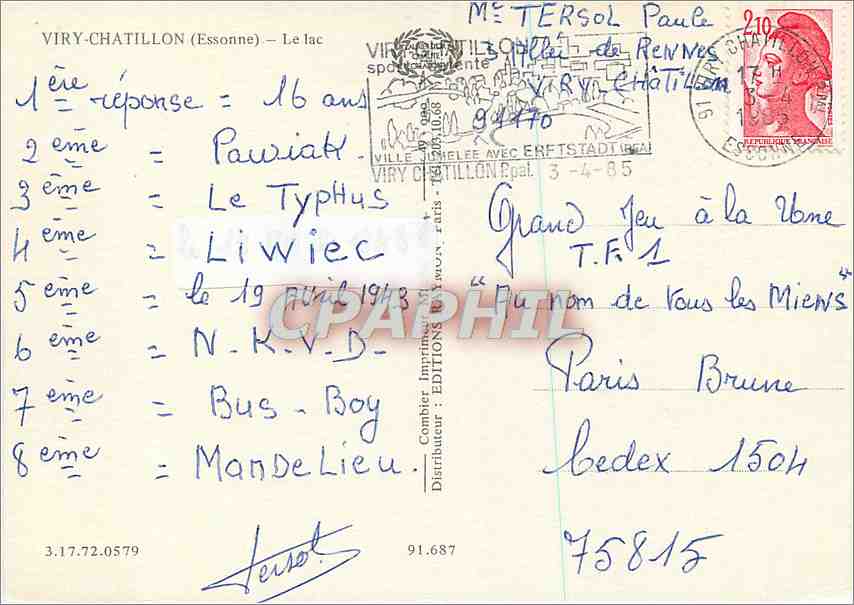 VIRY-CHATILLON (Essonne) – Le lac
1ère réponse = 16 ans
2ème = Pawiak.
3ème = Le Typhus
4ème = Liwiec
5ème = le 19 Avril 1943
6ème = N-K-V-D-
7ème = Bus-Boy
8ème = Mandelieu.
Tersol
3.17.72.0579
91.687
Combier Imprimeur
Distributeur : EDITIONS RAYMON, Paris - Tél. 203.10.68
Me TERSOL Paule
3 Allée de Rennes
VIRY-Châtillon
91170
VIRY-CHATILLON
VILLE JUMELEE AVEC ERFTSTADT (RFA)
VIRY CHATILLON Ppal. 3-4-85
91 VIRY CHATILLON PPAL
17 H
3-4
1985
ESSONNE
2,10
REPUBLIQUE FRANÇAISE
Grand Jeu à la Une
T.F.1
"Au nom de tous les Miens"
Paris Brune
Cedex 1504
75815
CPAPHIL